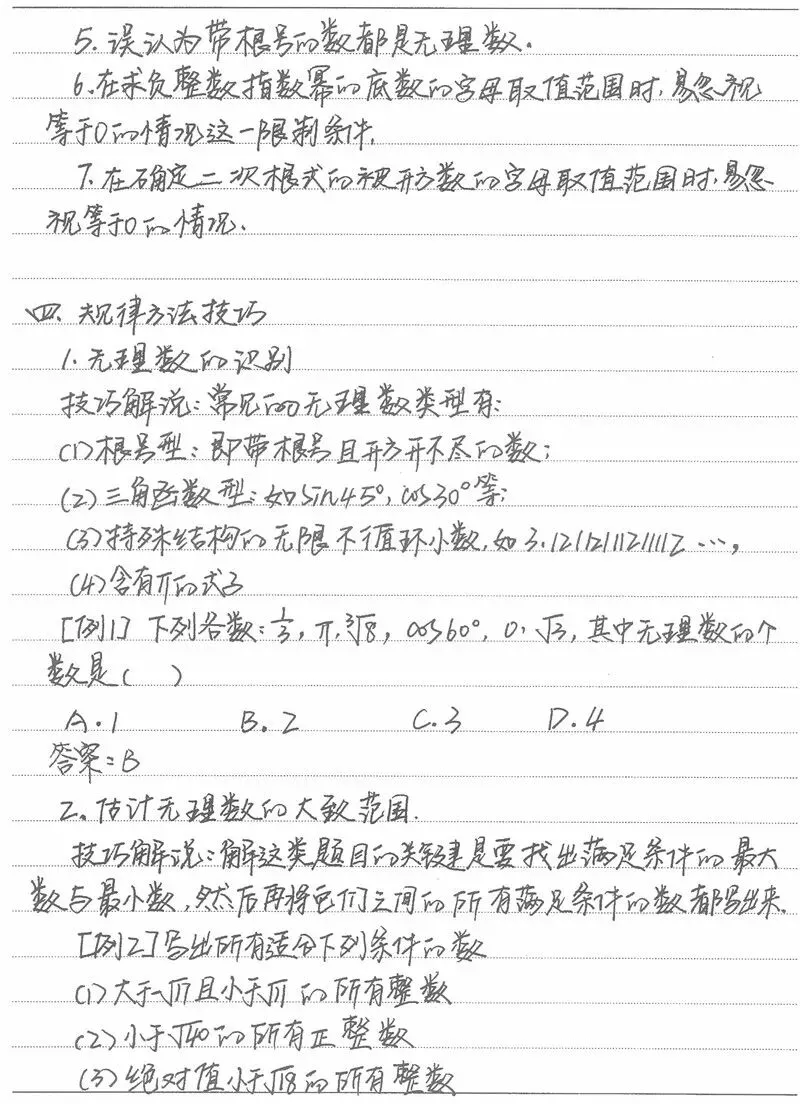 5. 误认为带根号的数都是无理数.
6.在求负整数指数幂的底数的字母取值范围时,易忽视
等于0的情况这一限制条件.
7.在确定二次根式的被开方数的字母取值范围时,易忽
视等于0的情况.
四.规律方法技巧
1.无理数的识别
技巧解说:常见的无理数类型有:
(1)根号型:即带根号且开方开不尽的数;
(2)三角函数型:如sin45°,cos30°等;
(3)特殊结构的无限不循环小数,如3.12112111211112…,
(4)含有π的式子
[例1] 下列各数:1/3,π,∛8,cos60°,0,√3,其中无理数的个
数是( )
A.1 B.2 C.3 D.4
答案:B
2.估计无理数的大致范围.
技巧解说:解这类题目的关键是要找出满足条件的最大
数与最小数,然后再将它们之间的所有满足条件的数都写出来.
[例2]写出所有适合下列条件的数
(1)大于-√17且小于√11的所有整数
(2)小于√40的所有正整数
(3)绝对值小于√18的所有整数